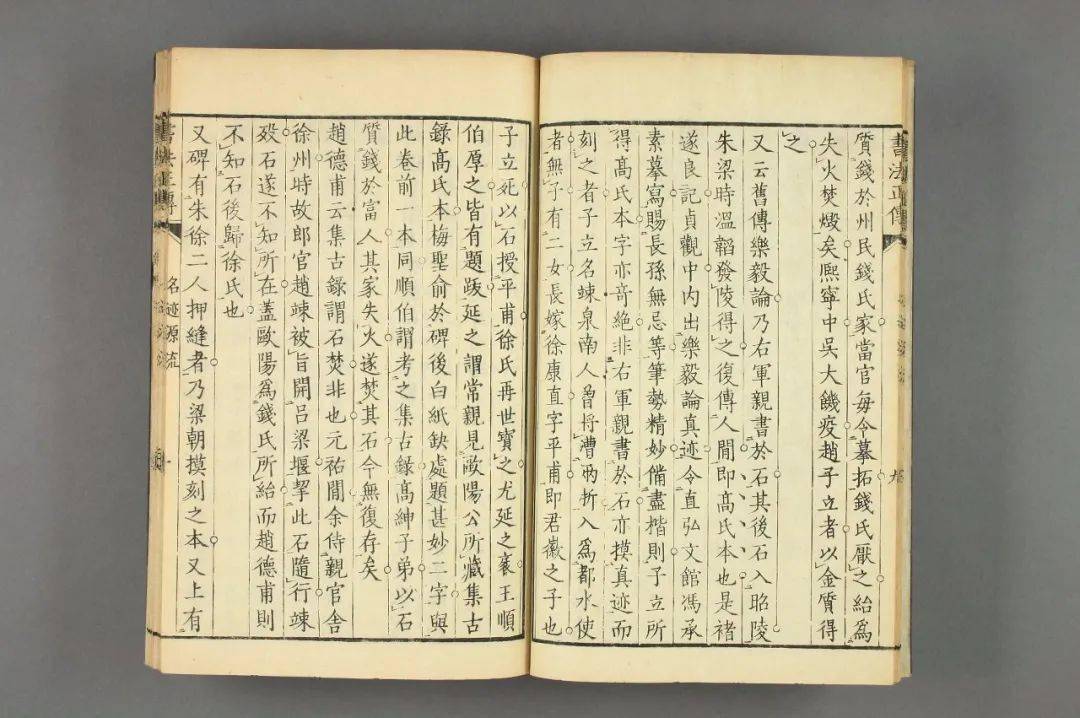 書法正傳
質錢於州民錢氏家當官每令墓拓錢氏厭之紿爲
失火焚燬矣熙寧中吳大饑疫趙子立者以金質得
之
又云舊傳樂毅論乃右軍親書於石其後石入昭陵
朱梁時溫韜發陵得之復傳人間即高氏本也是褚
遂良記貞觀中内出樂毅論真迹令直弘文館馮承
素摹寫賜長孫無忌等筆勢精妙備盡楷則子立所
得高氏本字亦奇絶非右軍親書於石亦摸真迹而
刻之者子立名竦泉南人曾將漕兩折入爲都水使
者無子有二女長嫁徐康直字平甫即君徽之子也
子立死以石授平甫徐氏再世寶之尤延之袤王順
伯厚之皆有題跋延之謂常親見歐陽公所藏集古
錄高氏本梅聖俞於碑後白紙缺處題甚妙二字與
此卷前一本同順伯謂考之集古錄高紳子弟以石
質錢於富人其家失火遂焚其石今無復存矣
趙德甫云集古錄謂石焚非也元祐間余侍親官舎
徐州時故郎官趙竦被旨開呂梁堰挈此石隨行竦
歿石遂不知所在蓋歐陽爲錢氏所紿而趙德甫則
不知石後歸徐氏也
又碑有朱徐二人押縫者乃梁朝摸刻之本又上有
名迹源流